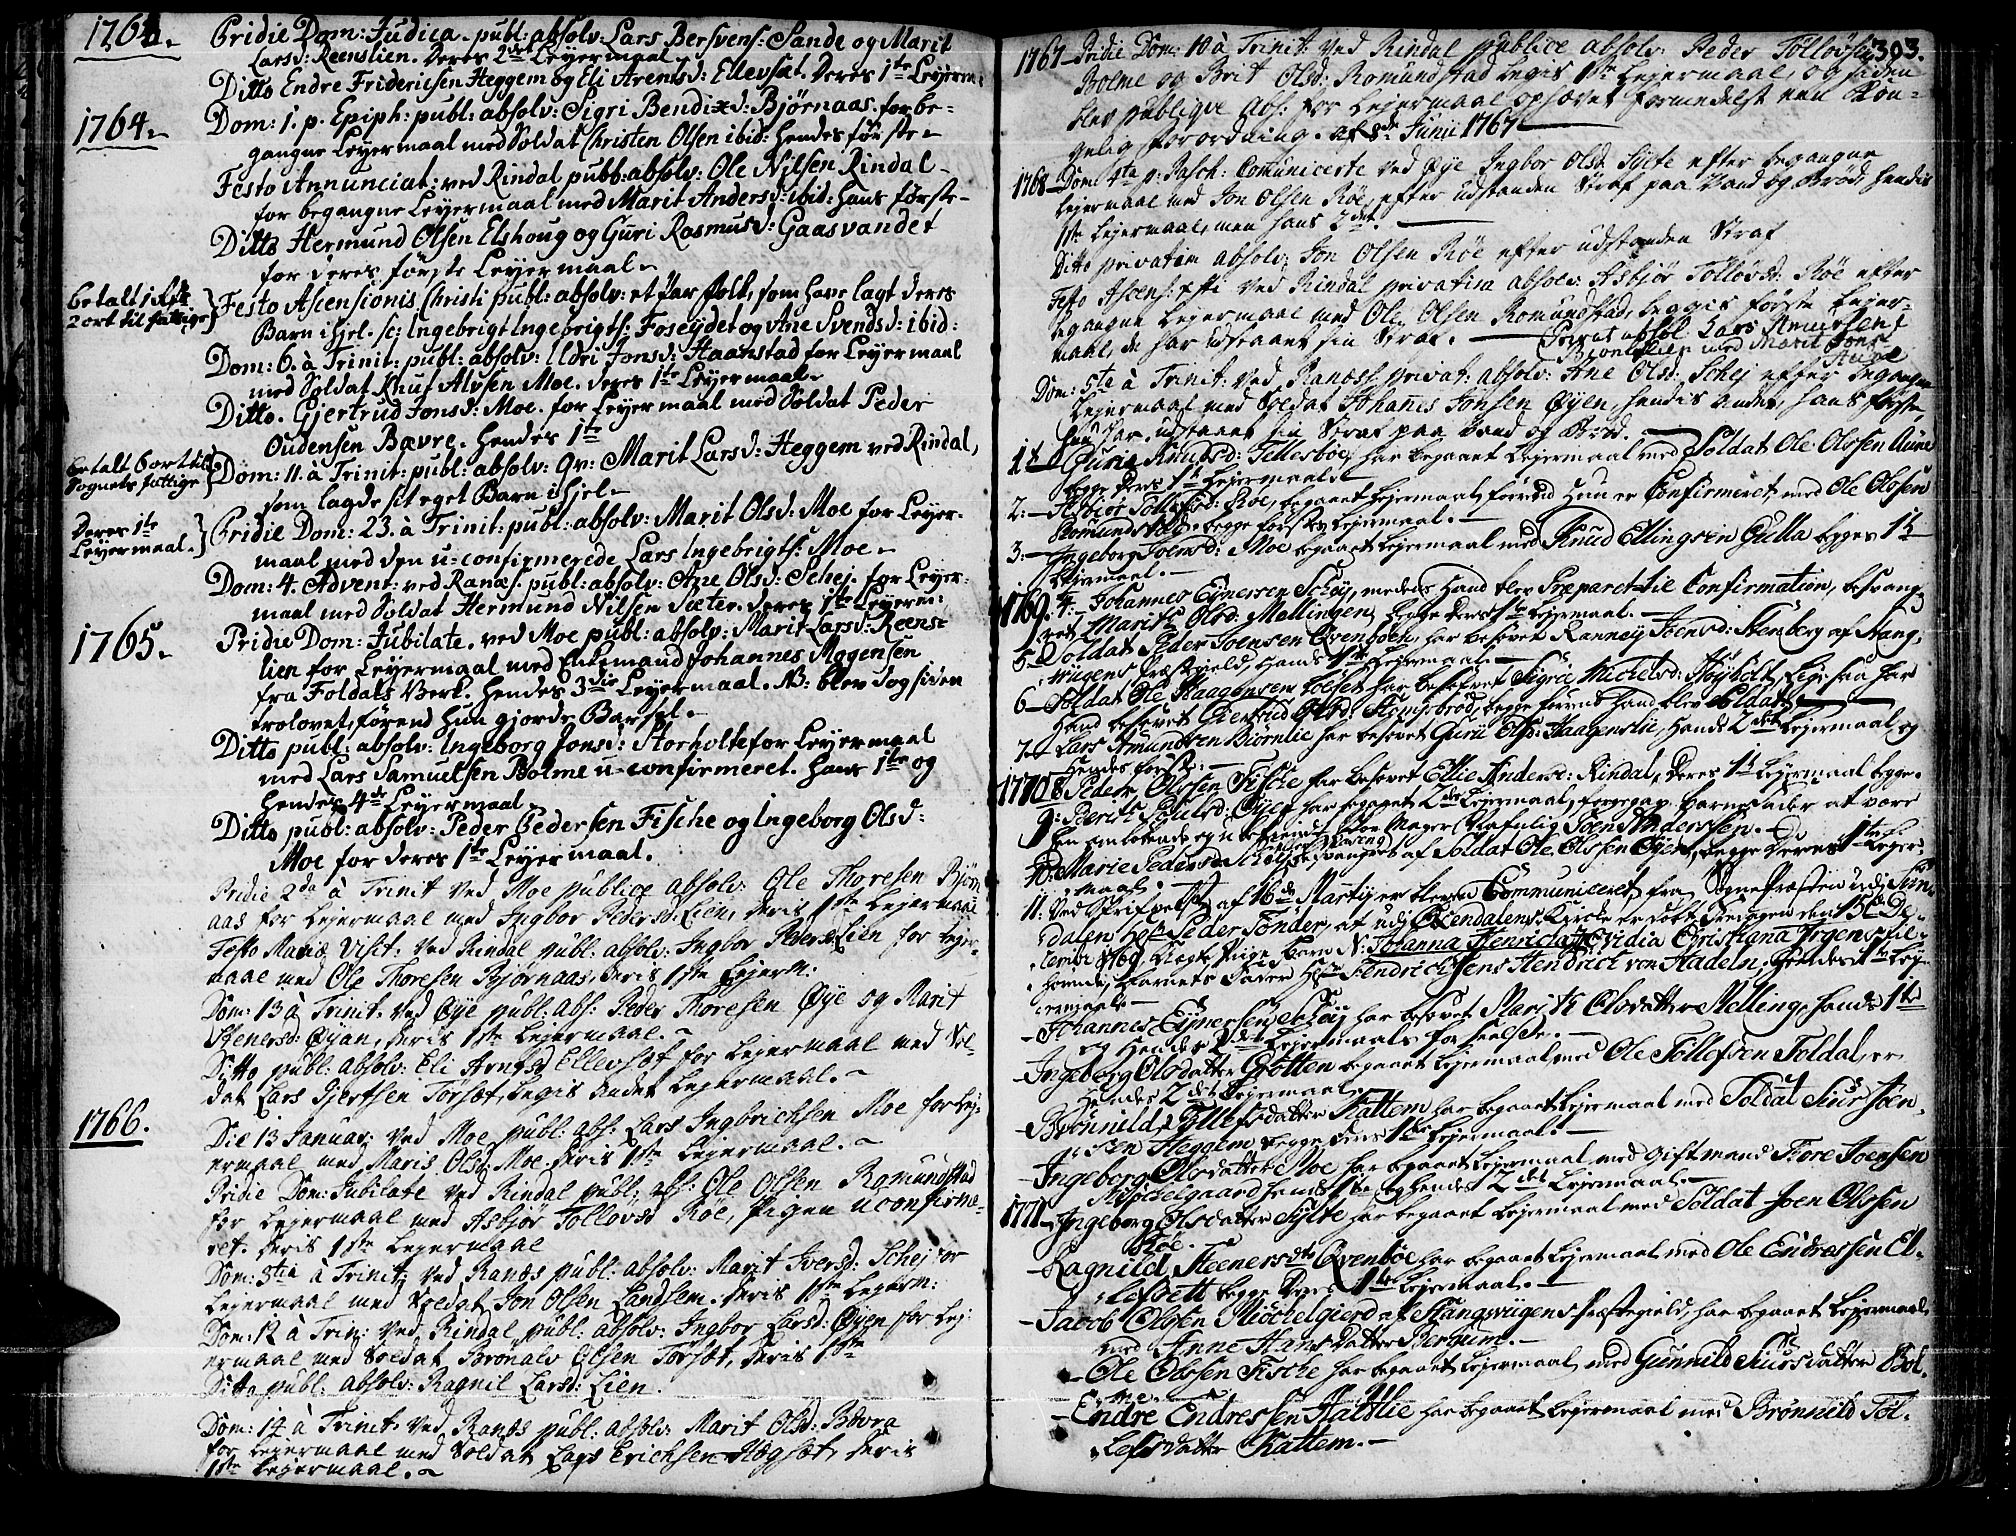 1764.
Pridie Dom: Judica. publ: absolv: Lars Bersvens: Sande og Marit
Larsd: Reenslien. Deres 2det Leyermaal.
Ditto Endre Friderichsen Heggem og Eli Arentsd: Ellevsæt. Deres 1te Leyerm:
1764.
Dom: 1. p. Epiph: publ: absolv: Sigri Bendixd: Bjørnaas. for be-
gangne Leyermaal med Soldat Christen Olsen ibid: hendes første.
Festo Annunciat: ved Rindal publ: absolv: Ole Nilsen Rindal
for begangne Leyermaal med Marit Andersd: ibid: hans første.
Ditto Hermund Olsen Elshoug og Guri Rasmusd: Gaasvandet
for deres første Leyermaal.
betalt 1 Rdr
2 ort til fattige
Festo Ascensionis Christi publ: absolv: et par folk, som have lagt deres
Barn ihjel. sc: Ingebrigt Ingebrigts: Foseydet og Ane Svendsd: ibid:
Dom: 6. à Trinit: publ: absolv: Ildri Jonsd: Haanstad for Leyermaal
med Soldat Knut Alvsen Moe. deres 1te Leyermaal.
Ditto. Gjertrud Jonsd: Moe. for Leyermaal med Soldat Peder
Oudensen Bævre. hendes 1te
betalt 6 ort til
Sognets fattige
Dom: 11. à Trinit: publ: absolv: Qv: Marit Larsd: Heggem ved Rindal,
som lagde sit eget Barn ihjel.
Deres 1te
Leyermaal.
Pridie Dom: 23. à Trinit: publ: absolv: Marit Olsd: Moe for Leyer-
maal med den u-confirmerede Lars Ingebrigts: Moe.
Dom: 4. Advent: ved Ranæs. publ: absolv: Ane Olsd: Schej. for Leyer-
maal med Soldat Hermund Nilsen Sæter. deres 1te Leyerm:
1765.
Pridie Dom: Jubilate. ved Moe publ: absolv: Marit Larsd: Reens-
lien for Leyermaal med Enkemand Johannes Mogensen
fra Foldals Verk. hendes 3die Leyermaal. NB: blev dog siden
trolovet, førend hun gjorde Barsel.
Ditto publ: absolv: Ingeborg Jonsd: Storholte for Leyermaal
med Lars Samuelsen Bolme u-confirmeret. hans 1te og
hendes 4de Leyermaal.
Ditto publ: absolv: Peder Pedersen Fische og Ingeborg Olsd:
Moe for deres 1te Leyermaal.
Pridie 2da à Trinit ved Moe publice absolv: Ole Thoresen Bjørn-
aas for Lejermaal med Ingbor Pedersd: Lien, deris 1ste Lejermaal
Festo Mariæ Visit: ved Rindal publ: absolv: Ingbor Pedersd: Lien for Lejer-
maal med Ole Thoresen Bjørnaas, deris 1ste Lejerm:
Dom: 13 à Trinit. ved Øye publ: abs: Peder Thoresen Øye og Marit
Stenersd: Øyan, deris 1ste Lejermaal.
Ditto publ: absolv: Eli Arnesd Ellevsæt for Lejermaal med Sol-
dat Lars Gjertsen Torset, begis andet Lejermaal.
1766.
Die 13 Januar: ved Moe publ: abs: Lars Ingbrichsen Moe for Lej-
ermaal med Maris Olsd: Moe. deris 1ste Lejermaal.
Pridie Dom: Jubilate ved Rindal publ: abs: Ole Olsen Romundstad
for Lejermaal med Asbjør Tollovsd Røe, Pigen uconfirme-
ret. deris 1ste Lejermaal
Dom: 3tia à Trinit: ved Ranæs publ: absolv: Marit Iversd: Schej for
Lejermaal med Soldat Jon Olsen Landsem. deris 1ste Lejerm:
Dom: 12 à Trin: ved Rindal publ: absolv: Ingbor Larsd: Øyen for Lej-
ermaal med Soldat Brønalv Olsen Torset, deris 1ste
Ditto publ: absolv: Ragnil Larsd: Lien.
Dom: 14 à Trinit. ved Ranæs publ: absolv: Marit Olsd: Bævra
for Lejermaal med Soldat Lars Erichsen Hægset, deris
1ste Lejermaal.
303.
1767
Pridie Dom: 10 à Trinit: ved Rindal publice absolv: Peder Tollovsen
Bolme og Brit Olsd: Romundstad begis 1ste Lejermaal, og siden
blev publiqve abs: for Lejermaal ophævet formedelst een Kon-
gelig Forordning. af 8de Junii 1767
1768
Dom: 4ta p: Pasch: Comunicerte ved Øye Ingbor Olsd: Sylte efter begangne
Lejermaal med Jon Olsen Røe, efter udstanden Straf paa Vand og Brød, hendis
1ste Lejermaal, men hans 2det.
Ditto privatim absolv: Jon Olsen Røe efter udstanden Straf
Festo Ascens: Xsti ved Rindal privatim absolv: Asbjør Tollovsd: Røe efter
begangne Lejermaal med Ole Olsen Romundstad, begges første Lejer-
maal, de har udstaaet sin Straf.
Privat absol: Lars Amundsen
Bjørnlien med Marit Jons:
Aune
Dom: 5te à Trinit: ved Ranæss privat: absolv: Ane Olsd: Schej efter begangne
Lejermaal med Soldat Johanes Jonsen Øyen, hendis andet, hans første
hun har udstaaet sin Straf paa Vand og Brød.
1te Gurie Knudsd: Tellesboe, har begaaet Lejermaal med Soldat Ole Olssen Aune
begge deres 1te Lejermaal.
2: Asbiør Tollefsd: Røe, begaaet Lejermaal, førend hun er Confirmeret med Ole Olssen
Romundstad. begge første Lejermaal.
3. Ingeborg Joensd: Moe begaaet Lejermaal med Knud Ellingsen Gulla begges 1te
Lejermaal.
1769.
4. Johannes Eynersen Schøj, medens hand blev Præparet til Confirmation, besvang-
ret Marith Olsd: Mellingen, begge deres 1te Lejermaal.
5. Soldat Peder Joensen Qvenboen, har besovet Ranney Joensd: Stenberg af Stang-
vigens Præstegield, hands 1te Lejermaal.
6. Soldat Ole Haagensen har besovet Sigrie Michelsd: Høyholt, lige saa har
hand besovet Giertrud Olsd: begge førend hand blev Soldat
7. Lars Amundsen Biørnlie har besovet Guru Olsd: Haagenslie, hands 2det Lejermaal, og
hendes første.
1770.
8. Peder Olssen Fische har besovet Ellie Andersd: Rindal, deres 1te Lejermaal begge.
9: Berith Poulsd: Øyen har begaaet 2det Lejermaal, foregav Barnefader at være
een omløbende og ubekiendt Mager Nafnlig Joen Anderssen.
10. Marie Pedersd: Schej besvangret af Soldat Ole Olssen Øyen, begge deres 1te Lejer-
maal.
11: Ved Skrifvelse af 16de Martij er bleven Communiceret fra Sogne Præsten udj Sun-
dalen Hr Peder Tønder, at udj Øxendalens Kirche er døbt Søndagen den 15de De-
cembr 1769. Uægte Pige Barn N: Johanna Henricha Ovidia Christiana Irgens til-
hørende, Barnets Fader Hr Fendrich Jens Hendrich von Hadeln, hendes 1te Lej-
ermaal.
Johannes Eynersen Schøj har besovet Marith Olsdatter Melling, hands 1te
og hendes 2det Lejermaal.
Ingeborg Olsdatter Grotten begaaet Lejermaal med Ole Tollefsen Foldal, er
hendes 2det Lejermaal.
Brønnild Tollefsdatter Kattem har begaaet Lejermaal med Soldat Siur Joen-
sen Heggem begge deres 1te Lejermaal.
Ingeborg Olsdatter Moe har begaaet Lejermaal med Giftmand Tore Joensen
Michelgaard hands 1te og hendes 2det Lejermaal.
1771.
Ingeborg Olsdatter Sylte har begaaet Lejermaal med Soldat Joen Olssen
Røe.
Ragnild Steenersdtr Qvenboe har begaaet Lejermaal med Ole Endressen El-
lefsett begge deres 1te Lejermaal.
Jacob Olssen Michelgierd af Stangvigens Præstegield, har begaaet Lejermaal,
med Anne Hansdatter Bergum.
Ole Olssen Fische har begaaet Lejermaal med Gunnild Siursdatter Bol-
me.
Endre Endressen Hatlie har begaaet Lejermaal med Brønnild Tol-
lefsdatter Kattem.